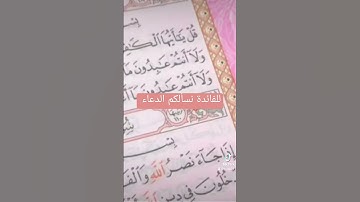 بِسْـ
قُلْ يَـٰٓأَيُّهَا ٱلْكَـٰفِرُ
وَلَآ أَنتُمْ عَـٰبِدُونَ مَآ
وَلَآ أَنتُمْ عَـٰبِدُونَ مَآ أَ
للفائدة نسألكم الدعاء
بِسْـ
إِذَا جَآءَ نَصْرُ ٱللَّهِ وَٱلْفَ
خُلُونَ فِى دِينِ